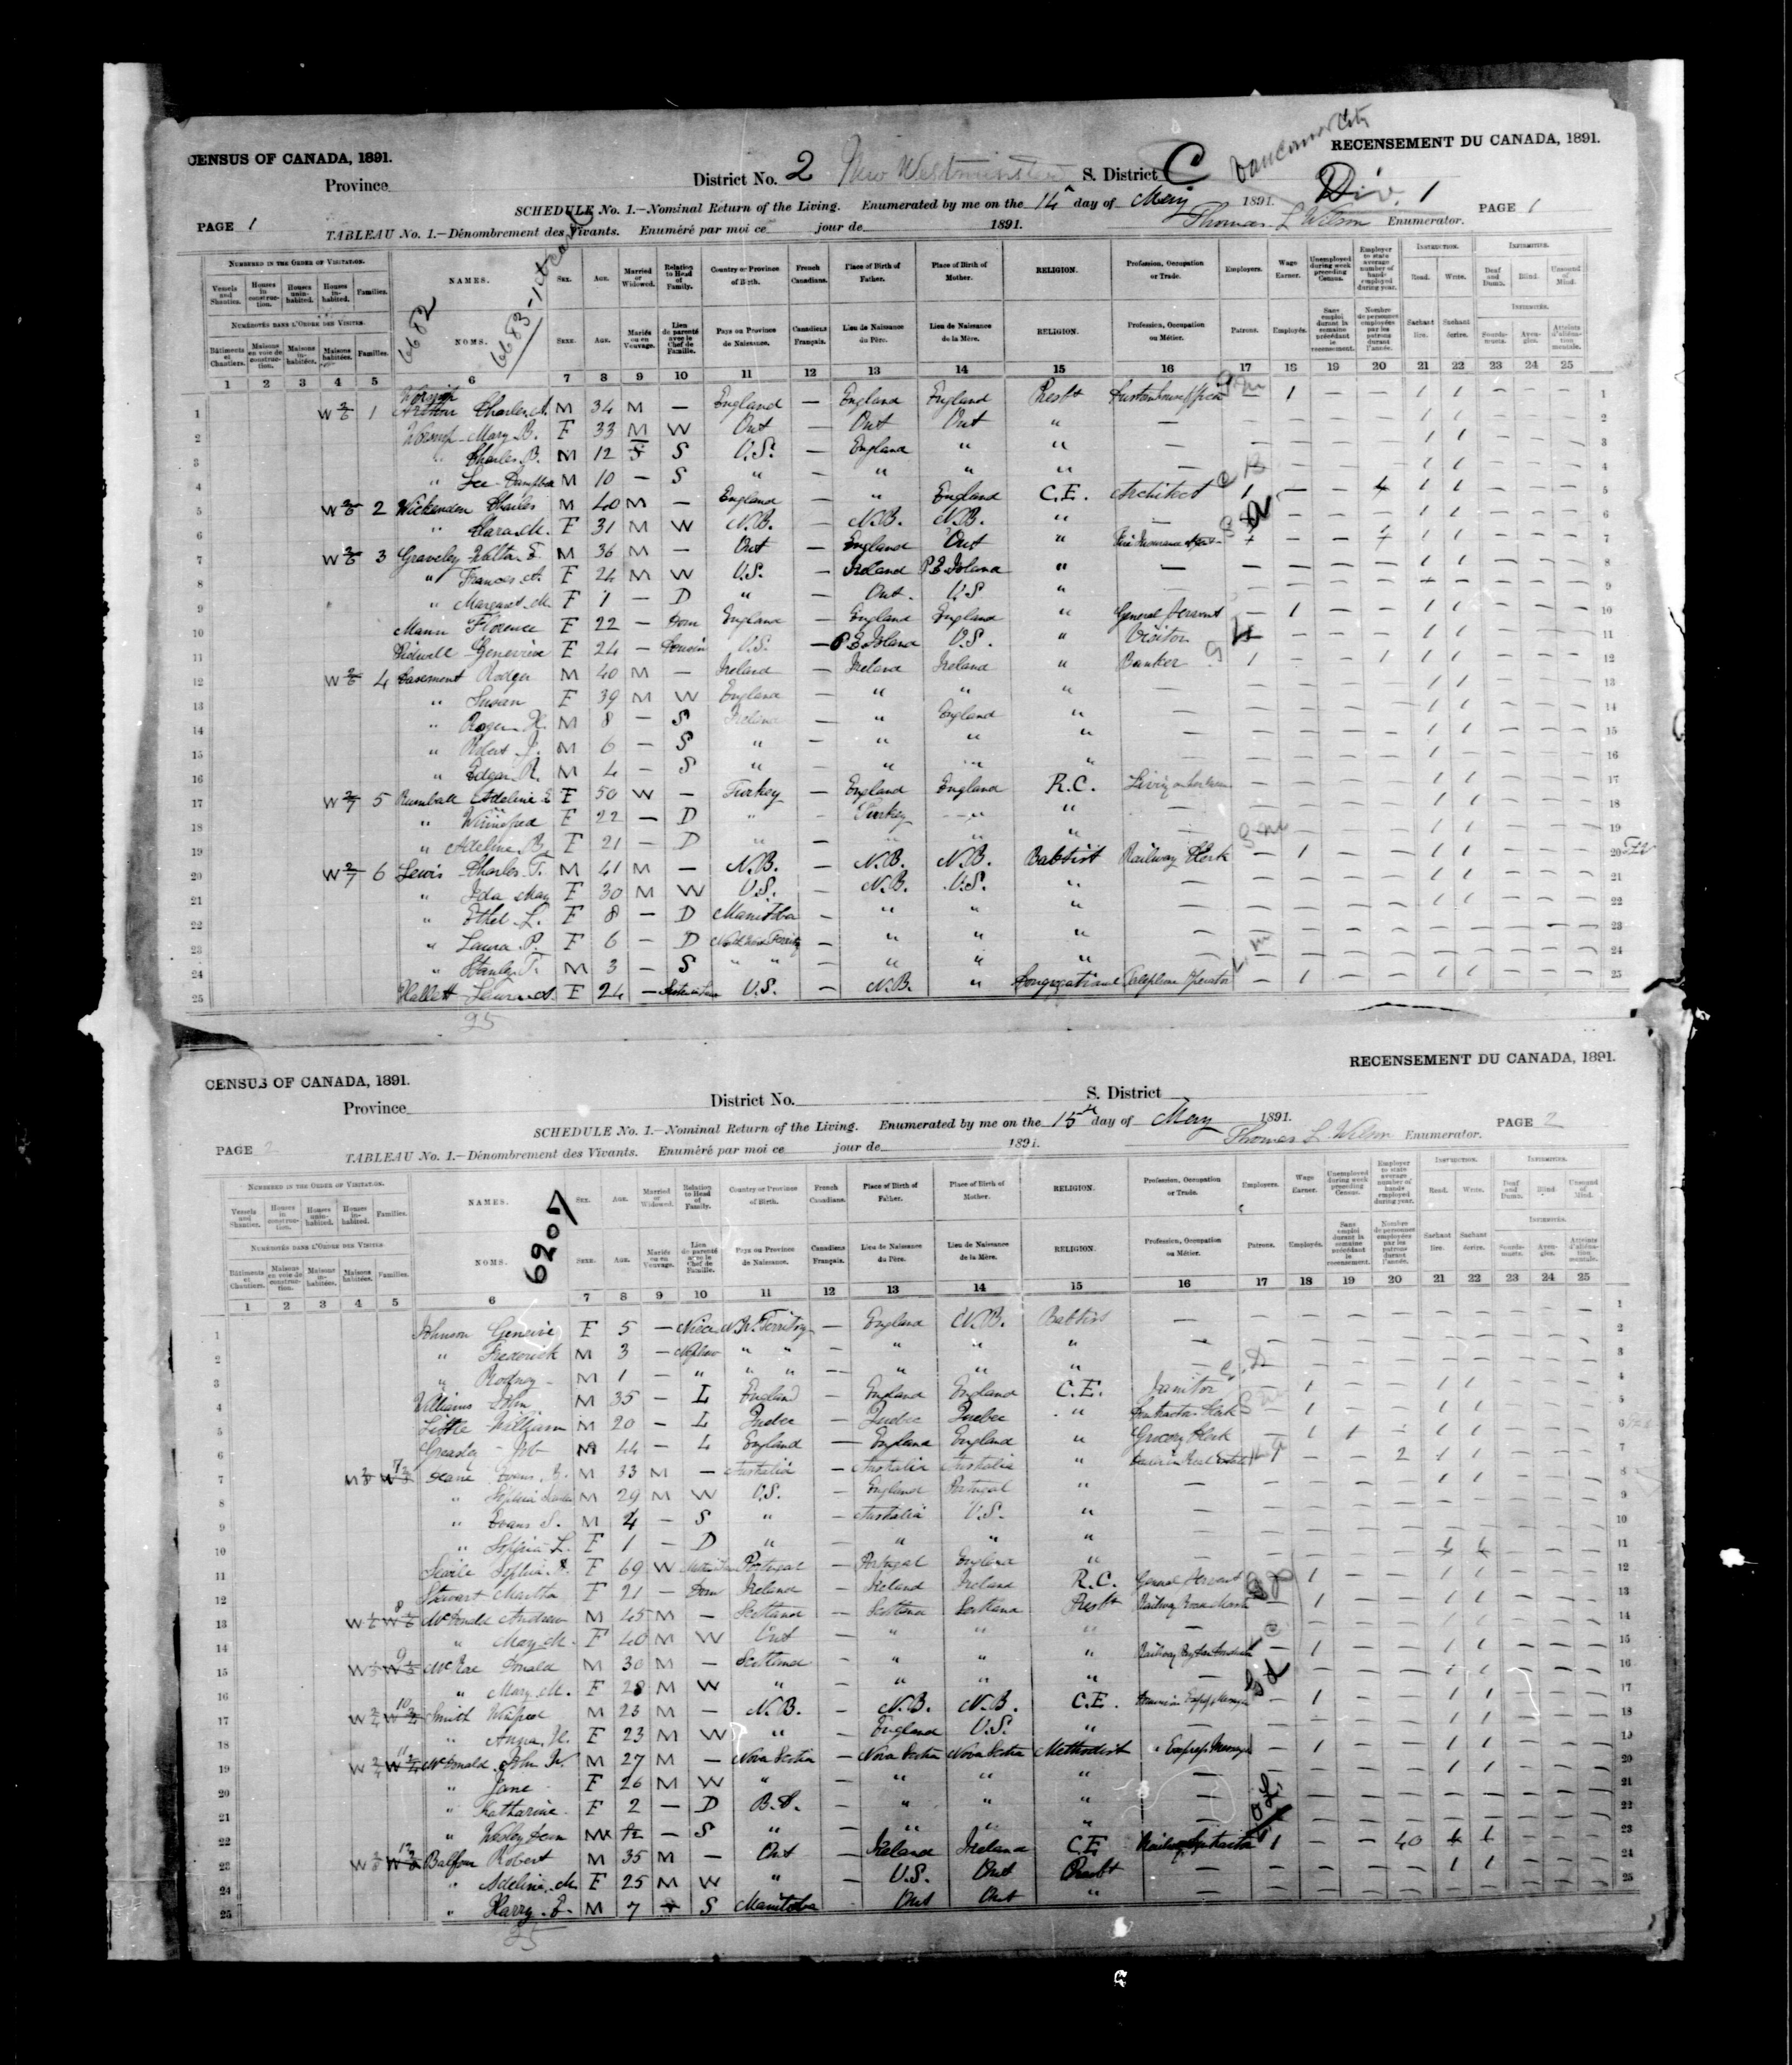 CENSUS OF CANADA, 1891.
RECENSEMENT DU CANADA, 1891.
Vancouver City
Province
District No. 2 New Westminster S. District C
Div. 1
SCHEDULE No. 1.—Nominal Return of the Living. Enumerated by me on the 14th day of May 1891.
Thomas L Wilson Enumerator.
PAGE 1
PAGE 1
TABLEAU No. 1.—Dénombrement des Vivants. Enuméré par moi ce jour de 1891.
NUMBERED IN THE ORDER OF VISITATION. NAMES. SEX. AGE. Married or Widowed. Relation to Head of Family. Country or Province of Birth. French Canadians. Place of Birth of Father. Place of Birth of Mother. RELIGION. Profession, Occupation or Trade. Employers. Wage Earner. Unemployed during week preceding Census. Employer to state average number of hands employed during year. INSTRUCTION. INFIRMITIES.
Vessels and Shanties. Houses in construction. Houses uninhabited. Houses inhabited. Families. Read. Write. Deaf and Dumb. Blind. Unsound of Mind.
6682
6683-1
NUMÉROTÉS DANS L'ORDRE DES VISITES. NOMS. SEXE. AGE. Mariés ou en Veuvage. Lien de parenté avec le Chef de Famille. Pays ou Province de Naissance. Canadiens Français. Lieu de Naissance du Père. Lieu de Naissance de la Mère. RELIGION. Profession, Occupation ou Métier. Patrons. Employés. Sans emploi durant la semaine précédant le recensement. Nombre de personnes employées par les patrons durant l'année. Sachant lire. Sachant écrire. INFIRMITÉS.
Bâtiments et Chantiers. Maisons en voie de construction. Maisons inhabitées. Maisons habitées. Familles. Sourds-muets. Aveugles. Atteints d'aliénation mentale.
1 2 3 4 5 6 7 8 9 10 11 12 13 14 15 16 17 18 19 20 21 22 23 24 25
1 W 2/6 1 Worsnop Charles A. M 34 M — England — England England Presbt — 1 — 1 1 — — — 1
2 Worsnop Mary B. F 33 M W Ont — Ont Ont " — 1 1 2
3 " Charles B. M 12 S U.S. — England " " — 1 1 3
4 " M 10 — S " — " " " — 1 1 4
5 W 2/6 2 Wickenden Charles M 40 M — England — " England C.E. Architect 1 — — 4 1 1 5
6 " Clara M. F 31 M W N.B. — N.B. N.B. " — 1 1 6
7 W 2/6 3 Graveley Walter E. M 36 M — Ont — England Ont " Fire Insurance Agent 1 1 7
8 " Frances A. F 24 M W U.S. — Ireland P.E. Island " — 1 1 8
9 " Margaret M. F 1 — D " — Ont. U.S " — 9
10 Mann Florence F 22 — Dom England — England England " General Servant — 1 1 1 10
11 Genevieve F 24 — Cousin U.S. — P.E. Island U.S. " Visitor 1 1 11
12 W 2/6 4 Casement Rodger M 40 M — Ireland — Ireland Ireland " Banker 1 — — 1 1 1 12
13 " Susan F 39 M W England — " " " — 1 1 13
14 " Roger H. M 8 — S Ireland — " England " — 1 1 14
15 " Robert J. M 6 — S " — " " " — 1 1 15
16 " Edgar R. M 4 — S " — " " " — 1 — 16
17 W 2/7 5 Rumball Adeline E F 50 W — Turkey — England England R.C. 1 1 17
18 " Winnifred F 22 — D " — Turkey " " — 1 1 18
19 " Adeline B. F 21 — D " — " " " — 1 1 19
20 W 2/7 6 Lewis Charles T. M 41 M — N.B. — N.B. N.B. Baptist Railway Clerk — 1 — 1 1 20
21 " Ida May F 30 M W U.S. — N.B. U.S. " — 1 1 21
22 " Ethel L. F 8 — D Manitoba — " " " — 1 1 22
23 " Laura P. F 6 — D North West Territy — " " " — 23
24 " Stanley T. M 3 — S " " — " " " — 24
25 Hallett Laura A. F 24 — Sister in Law U.S. — N.B. " Congregational Telephone Operator — 1 — 1 1 25
25
CENSUS OF CANADA, 1891.
RECENSEMENT DU CANADA, 1891.
Province
District No.
S. District
SCHEDULE No. 1.—Nominal Return of the Living. Enumerated by me on the 15th day of May 1891.
Thomas L Wilson Enumerator.
PAGE 2
PAGE 2
TABLEAU No. 1.—Dénombrement des Vivants. Enuméré par moi ce jour de 1891.
NUMBERED IN THE ORDER OF VISITATION. NAMES. SEX. AGE. Married or Widowed. Relation to Head of Family. Country or Province of Birth. French Canadians. Place of Birth of Father. Place of Birth of Mother. RELIGION. Profession, Occupation or Trade. Employers. Wage Earner. Unemployed during week preceding Census. Employer to state average number of hands employed during year. INSTRUCTION. INFIRMITIES.
Vessels and Shanties. Houses in construction. Houses uninhabited. Houses inhabited. Families. Read. Write. Deaf and Dumb. Blind. Unsound of Mind.
6207
NUMÉROTÉS DANS L'ORDRE DES VISITES. NOMS. SEXE. AGE. Mariés ou en Veuvage. Lien de parenté avec le Chef de Famille. Pays ou Province de Naissance. Canadiens Français. Lieu de Naissance du Père. Lieu de Naissance de la Mère. RELIGION. Profession, Occupation ou Métier. Patrons. Employés. Sans emploi durant la semaine précédant le recensement. Nombre de personnes employées par les patrons durant l'année. Sachant lire. Sachant écrire. INFIRMITÉS.
Bâtiments et Chantiers. Maisons en voie de construction. Maisons inhabitées. Maisons habitées. Familles. Sourds-muets. Aveugles. Atteints d'aliénation mentale.
1 2 3 4 5 6 7 8 9 10 11 12 13 14 15 16 17 18 19 20 21 22 23 24 25
1 Johnson F 5 — Niece N.W. Territory — England N.B. Baptist — 1
2 " Frederick M 3 — Nephew " " — " " " — 2
3 " Rodney M 1 — " " " — " " " — 3
4 Williams John M 35 — L England — England England C.E. Janitor — 1 1 1 4
5 Little William M 20 — L Quebec — Quebec Quebec " Contractor Clerk — 1 1 1 5
6 Job M 44 — L England — England England " Grocery Clerk — 1 1 1 1 6
7 7 Deane Evans M 33 M — Australia — Australia Australia " Real Estate 1 2 1 1 7
8 " Sophia M 29 M W U.S. — England Portugal " — 1 1 8
9 " Evans S. M 4 — S " — Australia U.S. " — 9
10 " Sophia L. F 1 — D " — " " " — 10
11 Searle Sophia F 69 W Portugal — Portugal England " — 11
12 Stewart Martha F 21 — Dom Ireland — Ireland Ireland R.C. General Servant — 1 1 1 12
13 8 McDonald Andrew M 45 M — Scotland — Scotland Scotland Presbt — 1 1 1 13
14 " May M. F 40 M W Ont — " " " — 14
15 9 McRae Donald M 30 M — Scotland — " " " Railway — 1 1 1 15
16 " Mary M. F 28 M W " — " " " — 1 1 16
17 10 Smith M 23 M — N.B. — N.B. N.B. C.E. — 1 1 1 17
18 " Anna H. F 23 M W " — England U.S. " — 1 1 18
19 11 McDonald John W. M 27 M — Nova Scotia — Nova Scotia Nova Scotia Methodist " — 1 1 1 19
20 " Jane F 26 M W " — " " " — 1 1 20
21 " Katharine F 2 — D B.C. — " " " — 21
22 " Wesley M — S " — " " " — 22
23 12 Balfour Robert M 35 M — Ont — Ireland Ireland C.E. 1 — — 40 1 1 23
24 " Adeline M. F 25 M W " — U.S. Ont Presbt — 1 1 24
25 " Harry F. M 7 S Manitoba Ont Ont " — 25
25